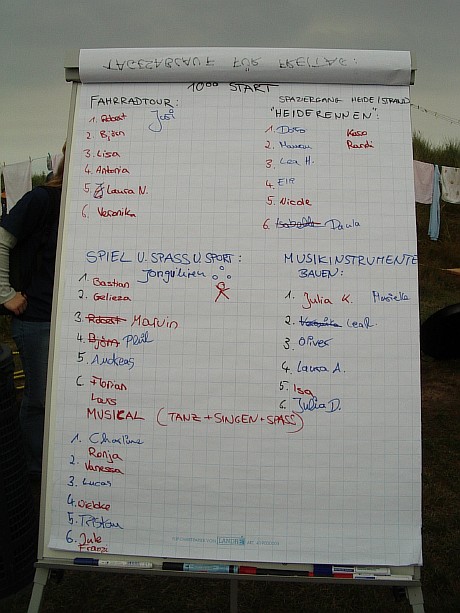 TAGESABLAUF FÜR FREITAG:
10⁰⁰ START
FAHRRADTOUR:
1. Robert Josi
2. Björn
3. Lisa
4. Antonia
5. Laura N.
6. Veronika
SPAZIERGANG HEIDE/STRAND
"HEIDERENNEN":
1. Doro Kaso
2. Mareau Randi
3. Lea H.
4. Ela
5. Nicole
6. Isabella Paula
SPIEL U. SPASS U. SPORT:
Jonglieren
1. Bastian
2. Gelieza
3. Robert Marvin
4. Björn Phil
5. Andreas
6. Florian
Lars
MUSIKINSTRUMENTE
BAUEN:
1. Julia K. Marieke
2. Veronika Lea R.
3. Oliver
4. Laura A.
5. Isa
6. Julia D.
MUSICAL (TANZ+SINGEN+SPASS)
1. Charline
2. Ronja
Vanessa
3. Lucas
4. Wiebke
5. Tristan
6. Jule
Franzi
LANDRÉ